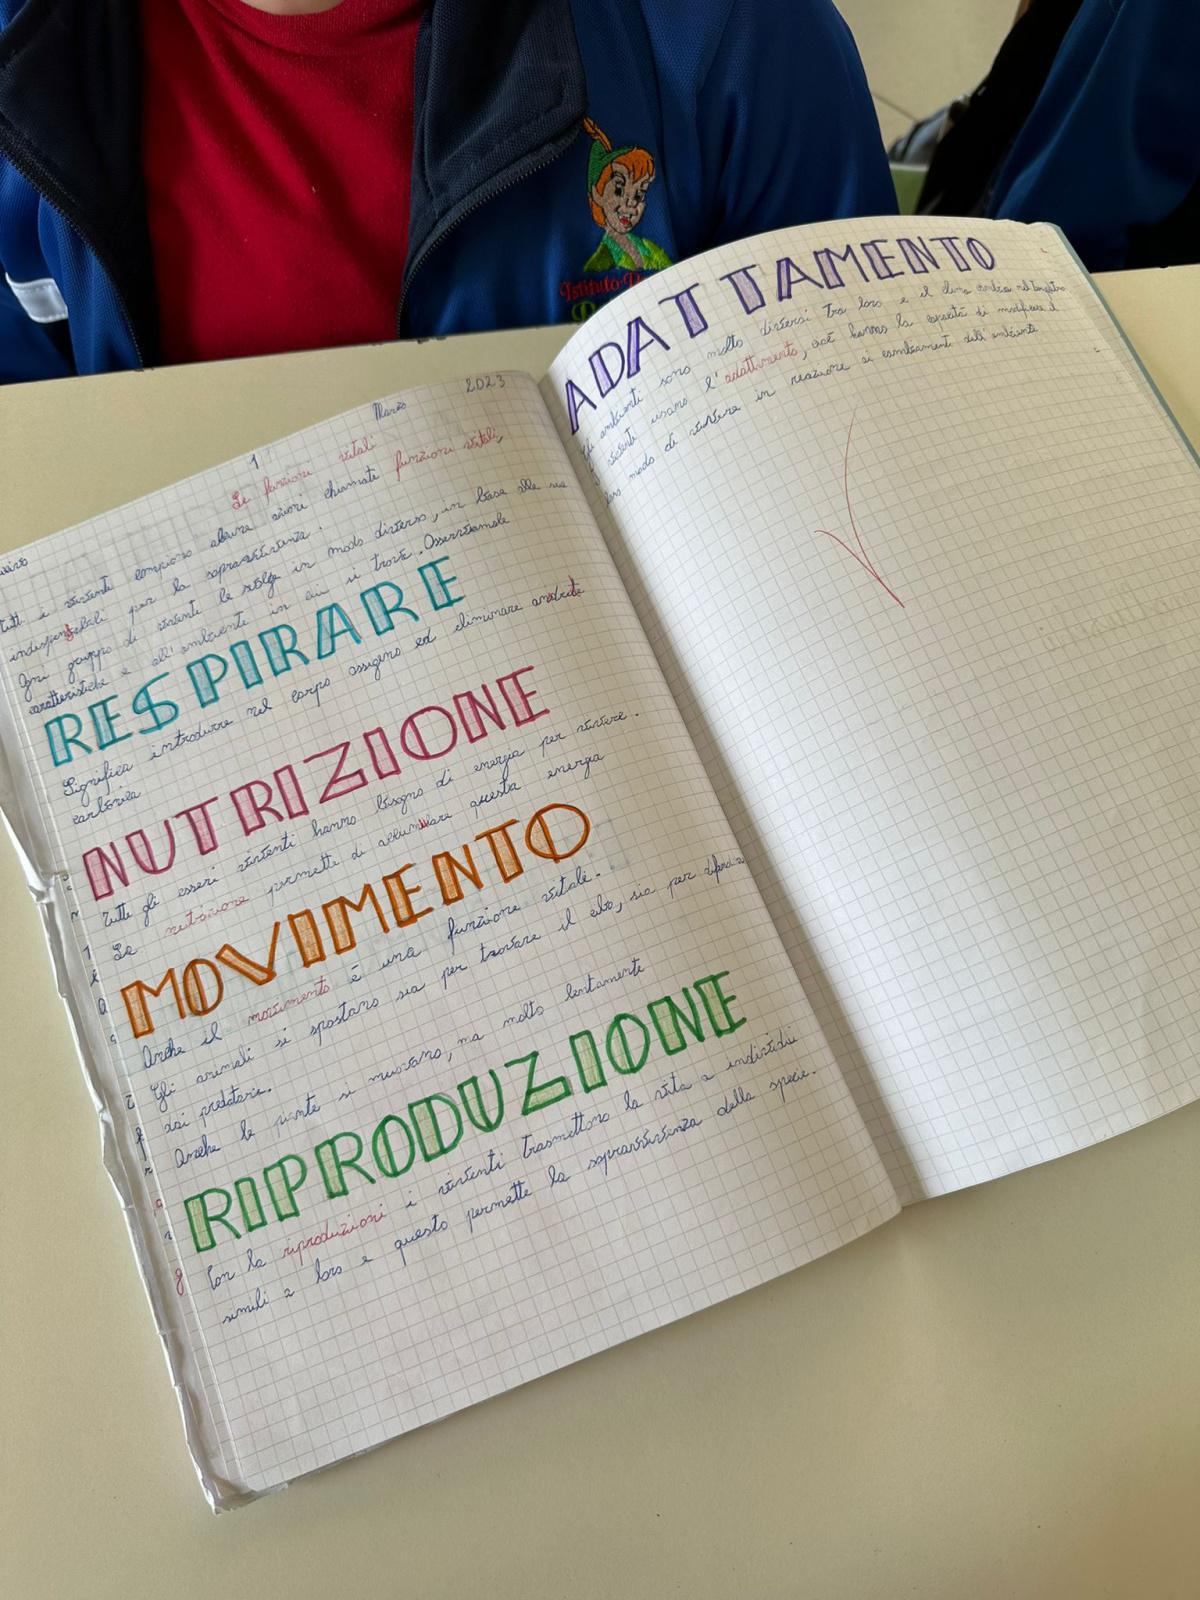 Istituto
Marzo 2023
1
Le funzioni vitali
Tutti i viventi compiono alcune azioni chiamate funzioni vitali,
indispensabili per la sopravvivenza.
Ogni gruppo di viventi le svolge in modo diverso, in base alle sue
caratteristiche e all'ambiente in cui si trova. Osserviamole
RESPIRARE
Significa introdurre nel corpo ossigeno ed eliminare anidride
carbonica
NUTRIZIONE
Tutti gli esseri viventi hanno bisogno di energia per vivere.
La nutrizione permette di accumulare questa energia
MOVIMENTO
Anche il movimento è una funzione vitale.
Gli animali si spostano sia per trovare il cibo, sia per difendersi
dai predatori.
Anche le piante si muovono, ma molto lentamente
RIPRODUZIONE
Con la riproduzioni i viventi trasmettono la vita a individui
simili a loro e questo permette la sopravvivenza della specie.
ADATTAMENTO
Gli ambienti sono molto diversi tra loro e il clima cambia nel tempo
I viventi usano l'adattamento, cioè hanno la capacità di modificare il
loro modo di vivere in reazione ai cambiamenti dell'ambiente